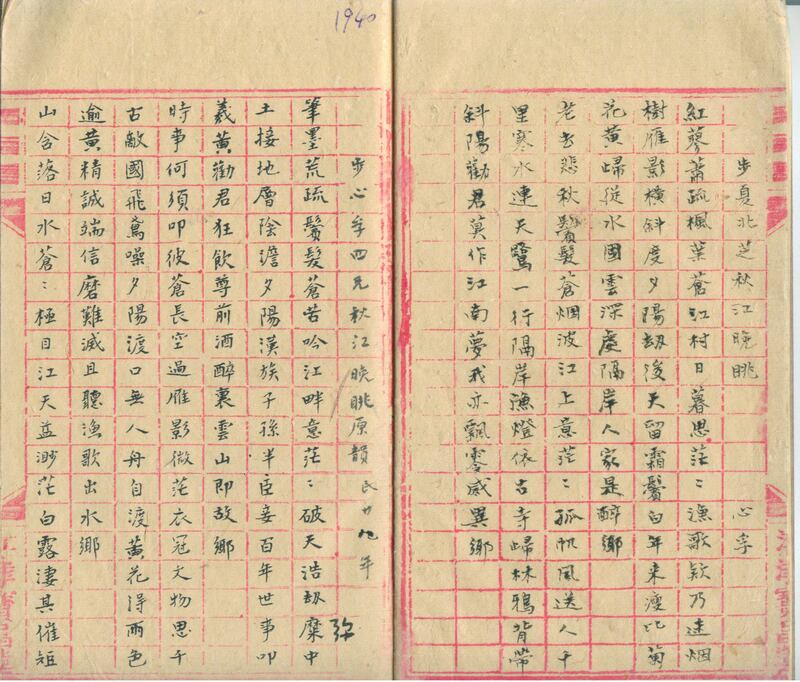 1940
步夏北芝秋江晚眺 心孚
紅蓼蕭疏楓葉蒼江村日暮思茫〻漁歌欸乃迷烟
樹雁影橫斜度夕陽劫後天留霜鬢白年來瘦比菊
花黃歸從水國雲深處隔岸人家是醉鄉
老去悲秋鬢髮蒼烟波江上意茫〻孤帆風送人千
里寒水連天鷺一行隔岸漁燈依古寺歸林鴉背帶
斜陽勸君莫作江南夢我亦飄零感異鄉
步心孚四兄秋江晚眺原韻 民廿九年
筆墨荒疏鬢髮蒼苦吟江畔意茫〻破天浩劫糜中
土接地層陰澹夕陽漢族子孫半臣妾百年世事叩
羲黃勸君狂飲尊前酒醉裏雲山即故鄉
時事何須叩彼蒼長空過雁影微茫衣冠文物思千
古敵國飛鳶噪夕陽渡口無人舟自渡黃花得雨色
逾黃精誠端信磨難滅且聽漁歌出水鄉
山含落日水蒼〻極目江天益渺茫白露淒其催短